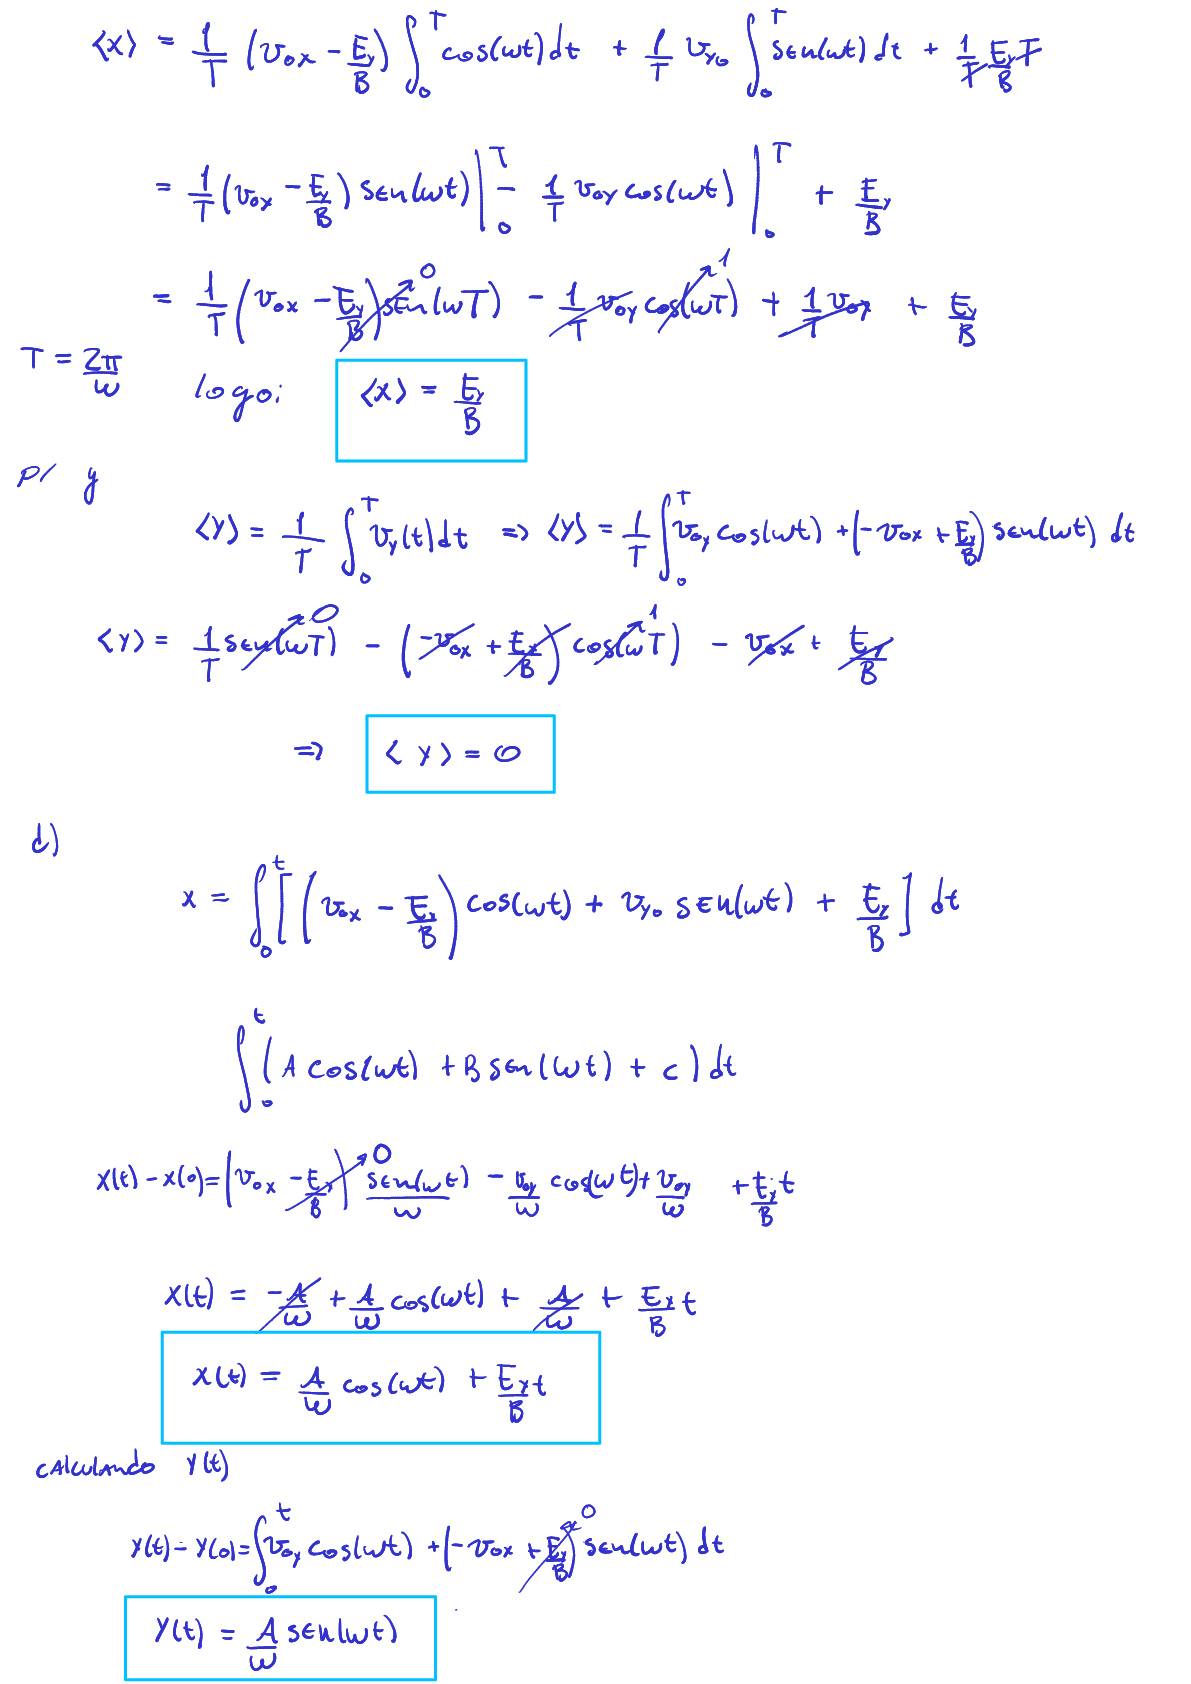 ⟨x⟩ = 1/T (v₀ₓ - E_y/B) ∫₀ᵀ cos(ωt) dt + 1/T v_y₀ ∫₀ᵀ sen(ωt) dt + 1/T E_y/B T
= 1/T (v₀ₓ - E_y/B) sen(ωt) |₀ᵀ - 1/T v₀y cos(ωt) |₀ᵀ + E_y/B
= 1/T (v₀ₓ - E_y/B) sen(ωT) 0 - 1/T v₀y cos(ωT) 1 + 1/T v₀y + E_y/B
T = 2π/ω logo: ⟨x⟩ = E_y/B
p/ y
⟨y⟩ = 1/T ∫₀ᵀ v_y(t) dt => ⟨y⟩ = 1/T ∫₀ᵀ v₀y cos(ωt) + (-v₀ₓ + E_y/B) sen(ωt) dt
⟨y⟩ = 1/T sen(ωT) 0 - (-v₀ₓ + E_y/B) cos(ωT) 1 - v₀ₓ + E_y/B
=> ⟨y⟩ = 0
d)
x = ∫₀ᵗ [(v₀ₓ - E_y/B) cos(ωt) + v_y₀ sen(ωt) + E_y/B] dt
∫₀ᵗ (A cos(ωt) + B sen(ωt) + c) dt
x(t) - x(0) = (v₀ₓ - E_y/B) 0 sen(ωt)/ω - v₀y/ω cos(ωt) + v₀y/ω + E_y/B t
x(t) = -A/ω + A/ω cos(ωt) + A/ω + E_y/B t
x(t) = A/ω cos(ωt) + E_y/B t
calculando y(t)
y(t) - y(0) = ∫₀ᵗ v₀y cos(ωt) + (-v₀ₓ + E_y/B) 0 sen(ωt) dt
y(t) = A/ω sen(ωt)